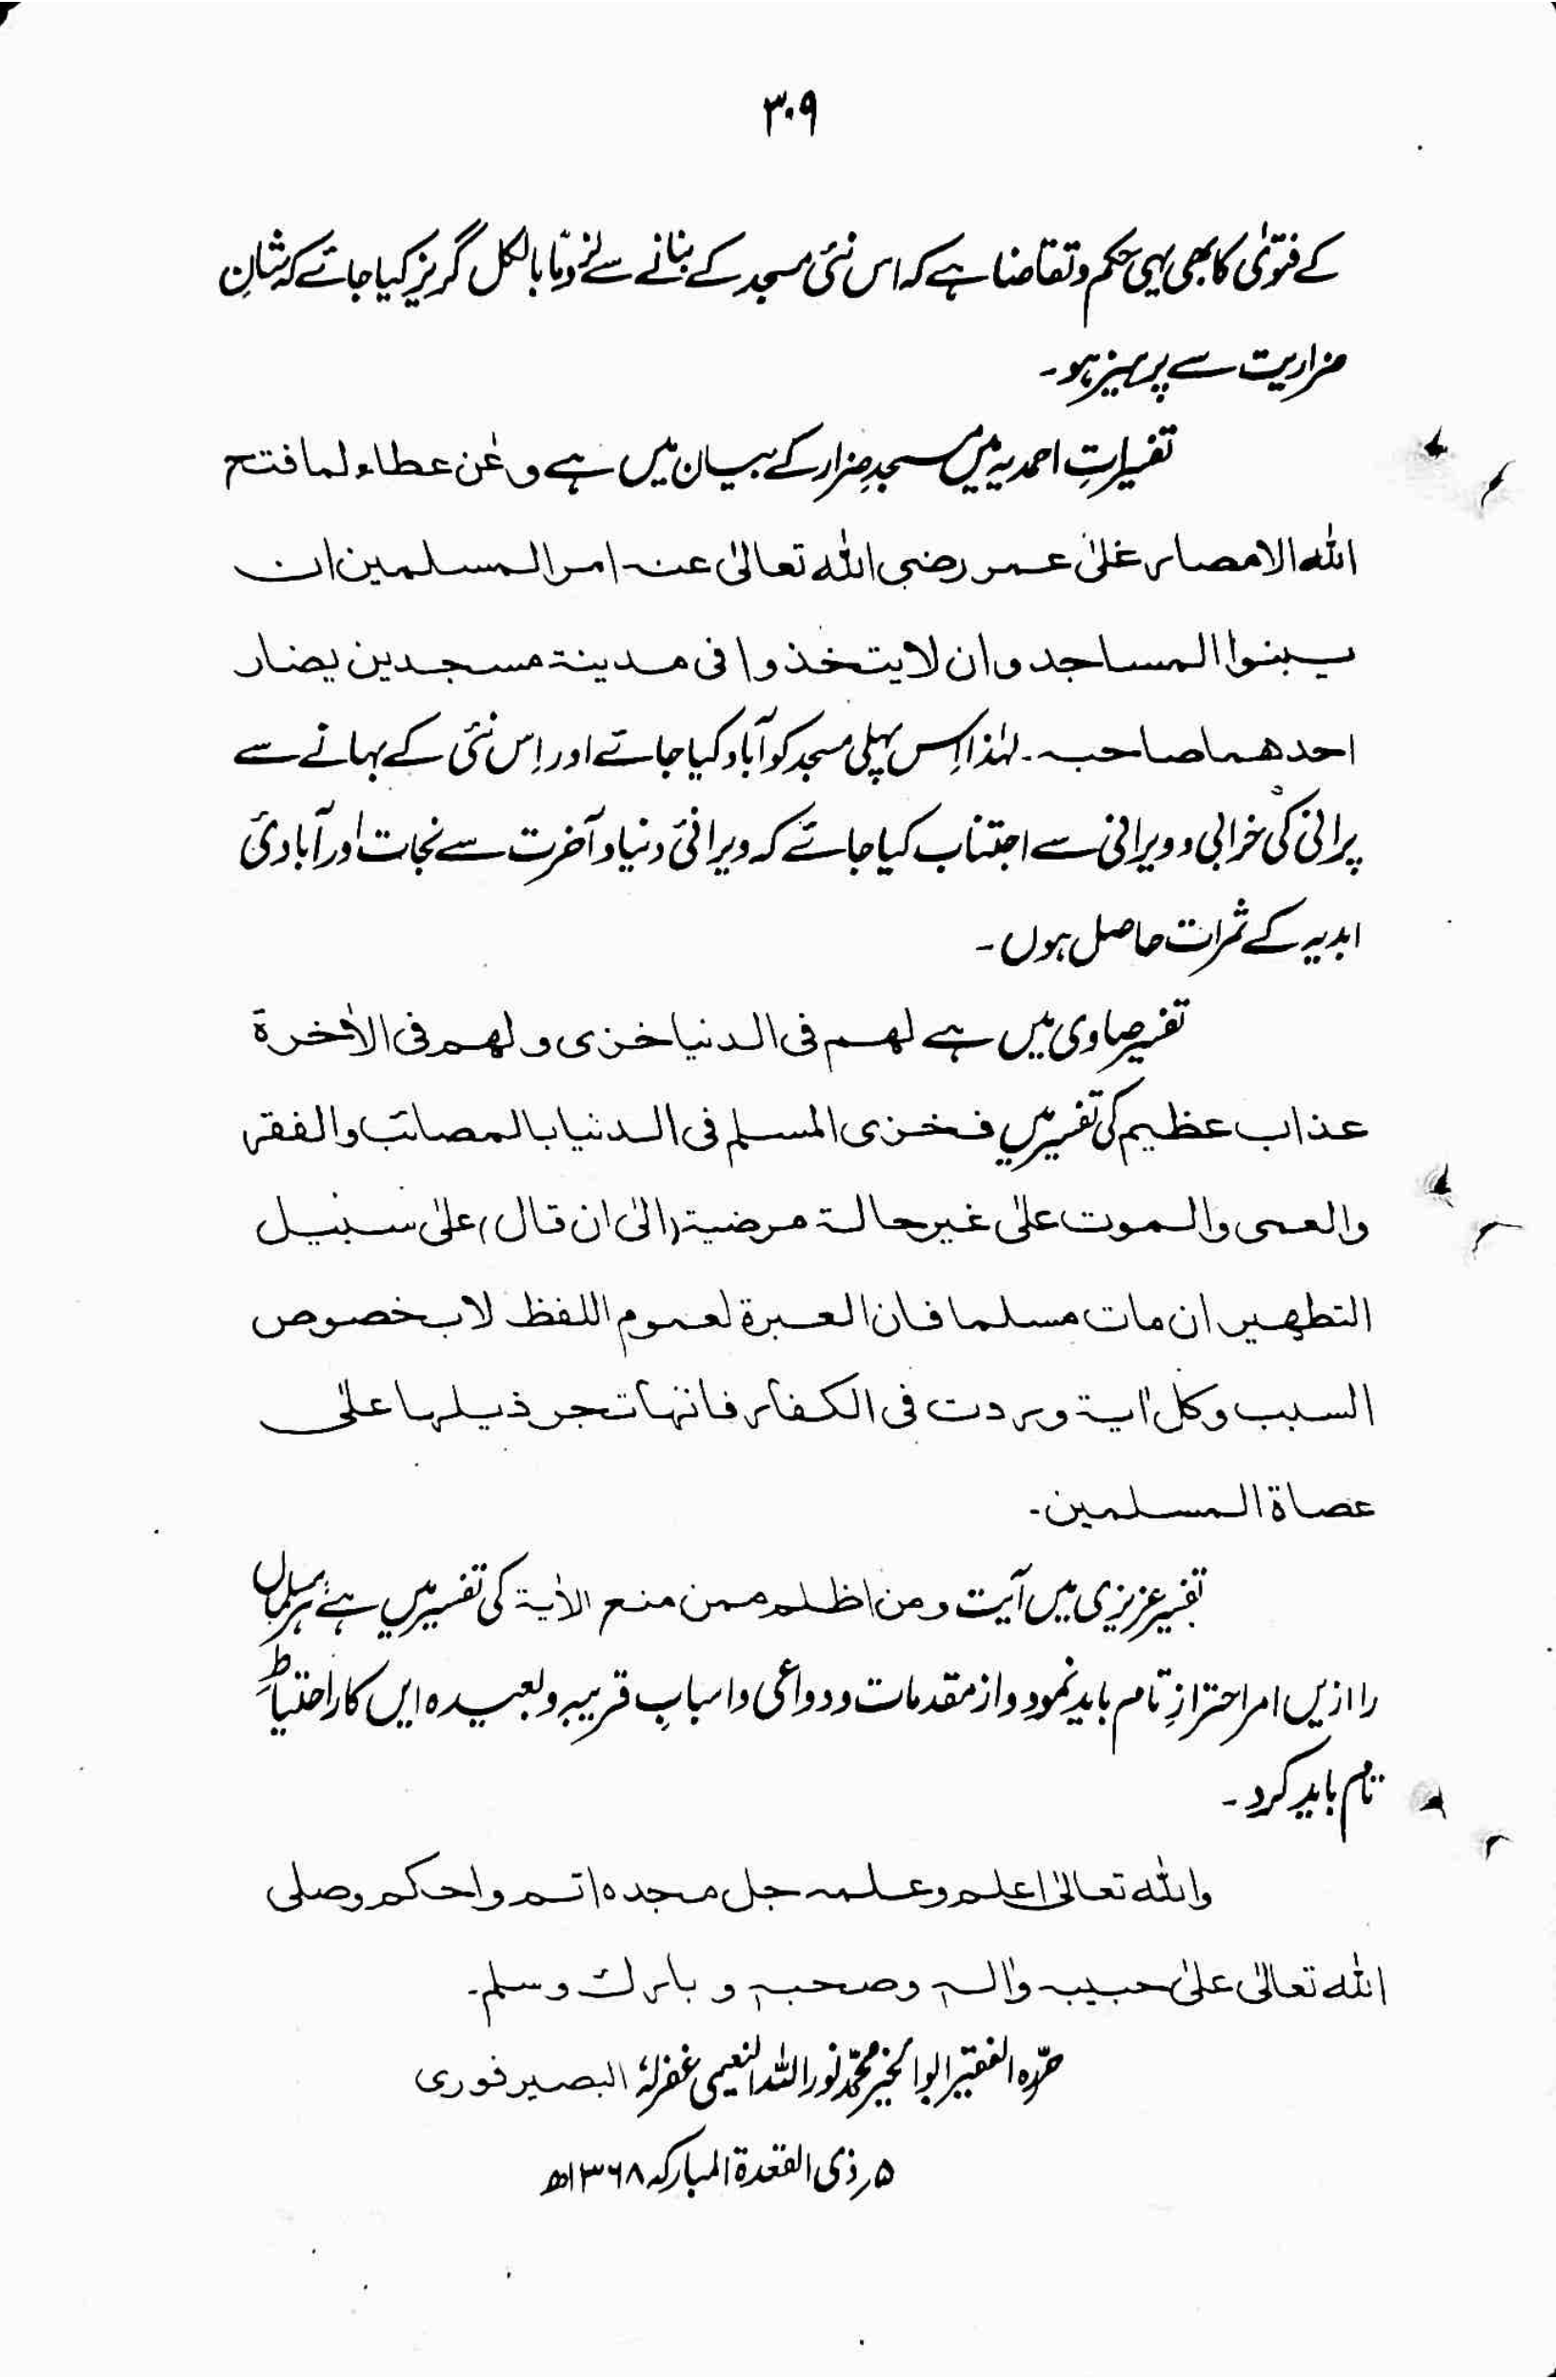 ۳۰۹
کے فتوٰی کا بھی یہی حکم و تقاضا ہے کہ اس نئی مسجد کے بنانے سے لزومًا بالکل گریز کیا جائے کہ شانِ
ضراریت سے پرہیز ہو۔
تفسیراتِ احمدیہ میں مسجدِ ضرار کے بیان میں ہے وعن عطاء لما فتح
الله الامصار علیٰ عمر رضی الله تعالیٰ عنہ امر المسلمین ان
یبنوا المساجد وان لا یتخذوا فی مدینۃ مسجدین یضار
احدھما صاحبہ۔ لہٰذا اِس پہلی مسجد کو آباد کیا جائے اور اِس نئی کے بہانے سے
پرانی کی خرابی و ویرانی سے اجتناب کیا جائے کہ ویرانیٔ دنیا و آخرت سے نجات اور آبادیٔ
ابدیہ کے ثمرات حاصل ہوں۔
تفسیر صاوی میں ہے لھم فی الدنیا خزی ولھم فی الاٰخرۃ
عذاب عظیم کی تفسیر میں فخزی المسلم فی الدنیا بالمصائب والفقر
والعمی والموت علیٰ غیر حالۃ مرضیۃ (الیٰ ان قال) علیٰ سبیل
التطھیر ان مات مسلما فان العبرۃ لعموم اللفظ لا بخصوص
السبب وکل اٰیۃ وردت فی الکفار فانھا تجر ذیلھا علیٰ
عصاۃ المسلمین۔
تفسیر عزیزی میں آیت ومن اظلم ممن منع الاٰیۃ کی تفسیر میں ہے ہر مسلماں
را ازیں امر احترازِ تام باید نمود و از مقدمات و دواعی و اسبابِ قریبہ و بعیدہ ایں کار احتیاطِ
تام باید کرد۔
والله تعالیٰ اعلم وعلمہ جل مجدہ اتم واحکم وصلی
الله تعالیٰ علیٰ حبیبہ واٰلہ وصحبہ و بارك وسلم۔
حرّرہ الفقیر ابوالخیر محمّد نور اللہ النعیمی غفرلہٗ البصیرفوری
۵؍ ذی القعدۃ المبارکہ ۱۳۶۸ھ